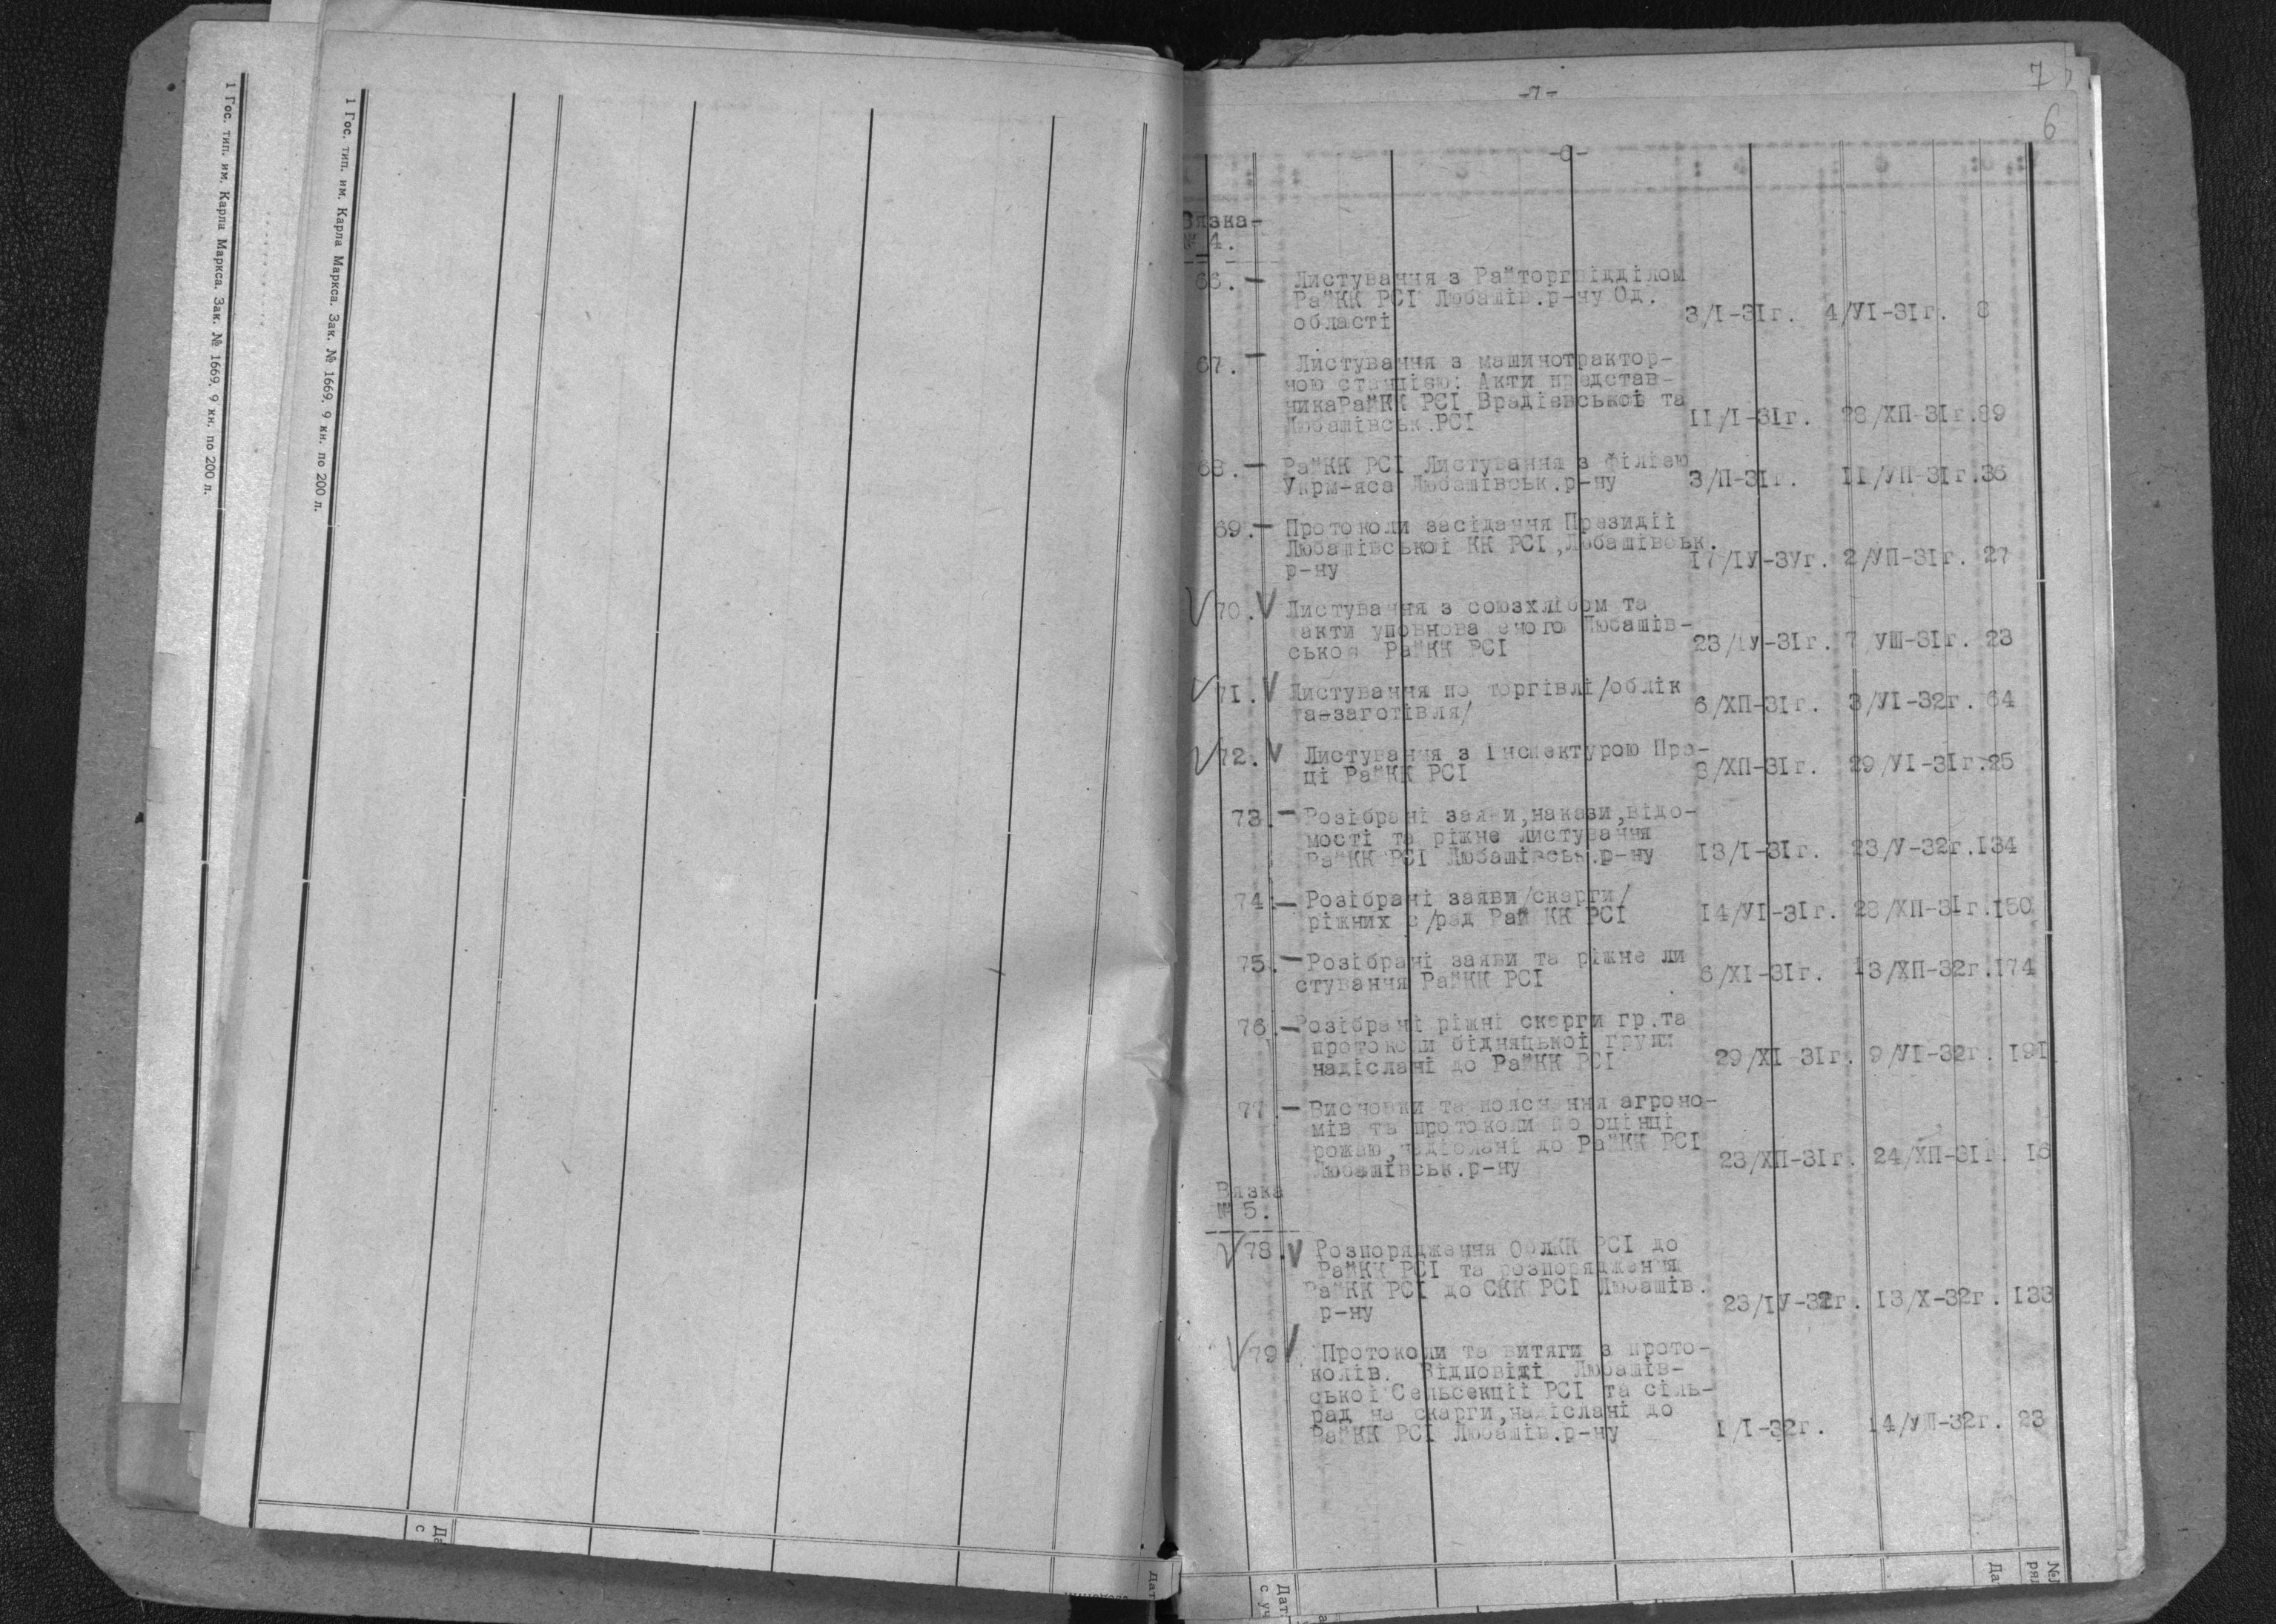 1 Гос. тип. им. Карла Маркса. Зак. № 1669. 9 кн. по 200 л.
1 Гос. тип. им. Карла Маркса. Зак. № 1669. 9 кн. по 200 л.
-7-
7
6
-6-
Вязка-
№ 4.
66.— Листування з Райторгвідділом
РайКК РСІ Любашів.р-ну Од.
області 3/І-31г. 4/УІ-31г. 8
67.— Листування з машинотрактор-
ною станцією: Акти представ-
никаРайКК РСІ Врадієвської та
Любашівськ.РСІ 11/І-31г. 28/ХП-31г.89
68.— РайКК РСІ Листування з філією
Укрм-яса Любашівськ.р-ну 3/П-31г. 11/УП-31г.36
69.— Протоколи засідання Президії
Любашівської КК РСІ,Любашівськ.
р-ну 17/ІУ-3Уг. 2/УП-31г. 27
70. Листування з союзхлібом та
акти уповнова еного Любашів-
ської РайКК РСІ 23/ІУ-31г. 7/УШ-31г. 23
71. Листування по торгівлі/облік
та-заготівля/ 6/ХП-31г. 3/УІ-32г. 64
72. Листування з Інспектурою Пра-
ці РайКК РСІ 3/ХП-31г. 29/УІ-31г.25
73.— Розібрані заяви,накази,відо-
мості та ріжне листування
РайКК РСІ Любашівськ.р-ну 13/І-31г. 23/У-32г.134
74.— Розібрані заяви/скарги/
ріжних с/рад Рай КК РСІ 14/УІ-31г. 28/ХП-31г.150
75.— Розібрані заяви та ріжне ли
стування РайКК РСІ 6/ХІ-31г. 13/ХП-32г.174
76.— Розібрані ріжні скарги гр.та
протоколи бідняцької групи
надіслані до РайКК РСІ 29/ХІ-31г. 9/УІ-32г. 191
77.— Висновки та пояснення агроно-
мів та протоколи по оцінці
рожаю,надіслані до РайКК РСІ
Любашівськ.р-ну 23/ХП-31г. 24/ХП-31г. 16
Вязка
№ 5.
78. Розпорядження ОблКК РСІ до
РайКК РСІ та розпорядження
РайКК РСІ до СКК РСІ Любашів.
р-ну 23/ІУ-32г. 13/Х-32г. 133
79. Протоколи та витяги з прото-
колів. Відповіді Любашів-
ської Сельсекції РСІ та сіль-
рад на скарги,надіслані до
РайКК РСІ Любашів.р-ну 1/І-32г. 14/УШ-32г. 23